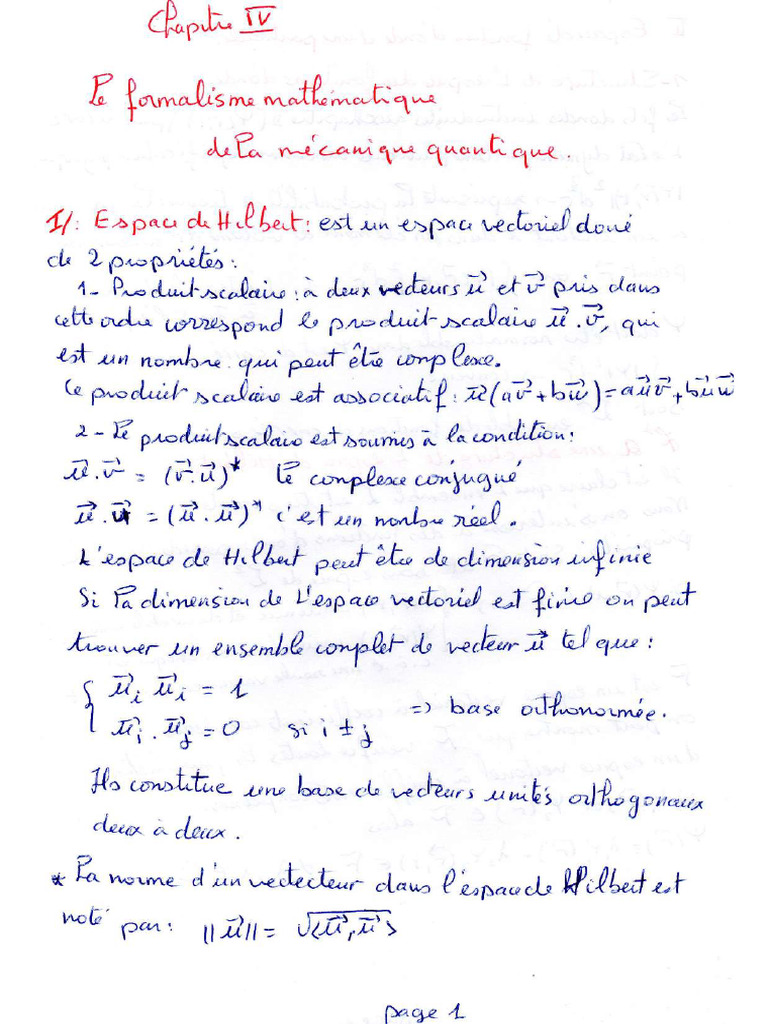 Chapitre IV
Le formalisme mathématique
de la mécanique quantique.
I/: Espace de Hilbert: est un espace vectoriel doué
de 2 propriétés:
1- Produit scalaire: à deux vecteurs u⃗ et v⃗ pris dans
cette ordre correspond le produit scalaire u⃗.v⃗, qui
est un nombre qui peut être complexe.
Ce produit scalaire est associatif: u⃗(av⃗+bw⃗)=au⃗v⃗+bu⃗w⃗
2- Le produit scalaire est soumis à la condition:
u⃗.v⃗ = (v⃗.u⃗)* le complexe conjugué
u⃗.u⃗ = (u⃗.u⃗)* c'est un nombre réel.
L'espace de Hilbert peut être de dimension infinie
Si la dimension de L'espace vectoriel est finie on peut
trouver un ensemble complet de vecteur u⃗ tel que:
{ u⃗i u⃗i = 1
u⃗i . u⃗j = 0 si i ≠ j => base orthonormée.
Ils constitue une base de vecteurs unités orthogonaux
deux à deux.
* La norme d'un vectecteur dans l'espace de Hilbert est
noté par: ||u⃗|| = √⟨u⃗,u⃗⟩
page 1